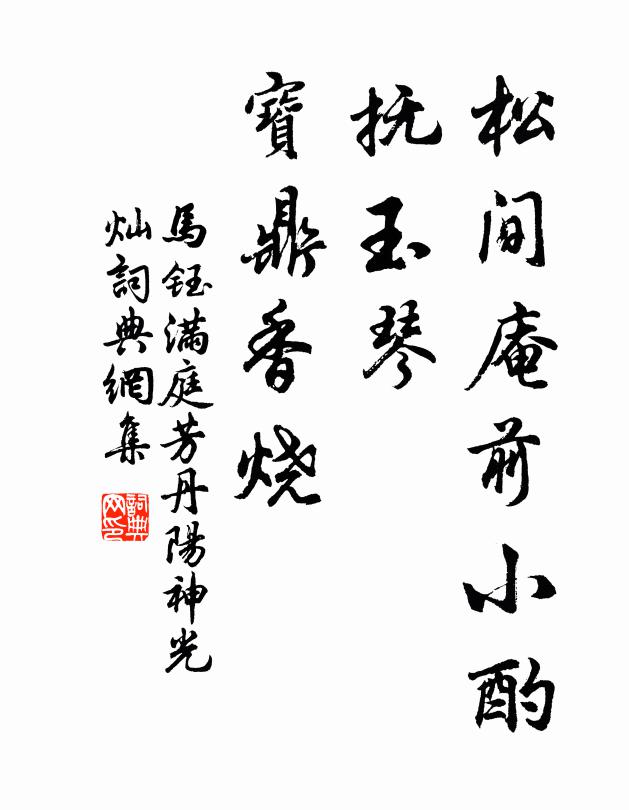 松间庵前小酌
抚玉琴
寶鼎香烧
馬钰满庭芳丹陽神光
灿詞典網集
詞典
网印